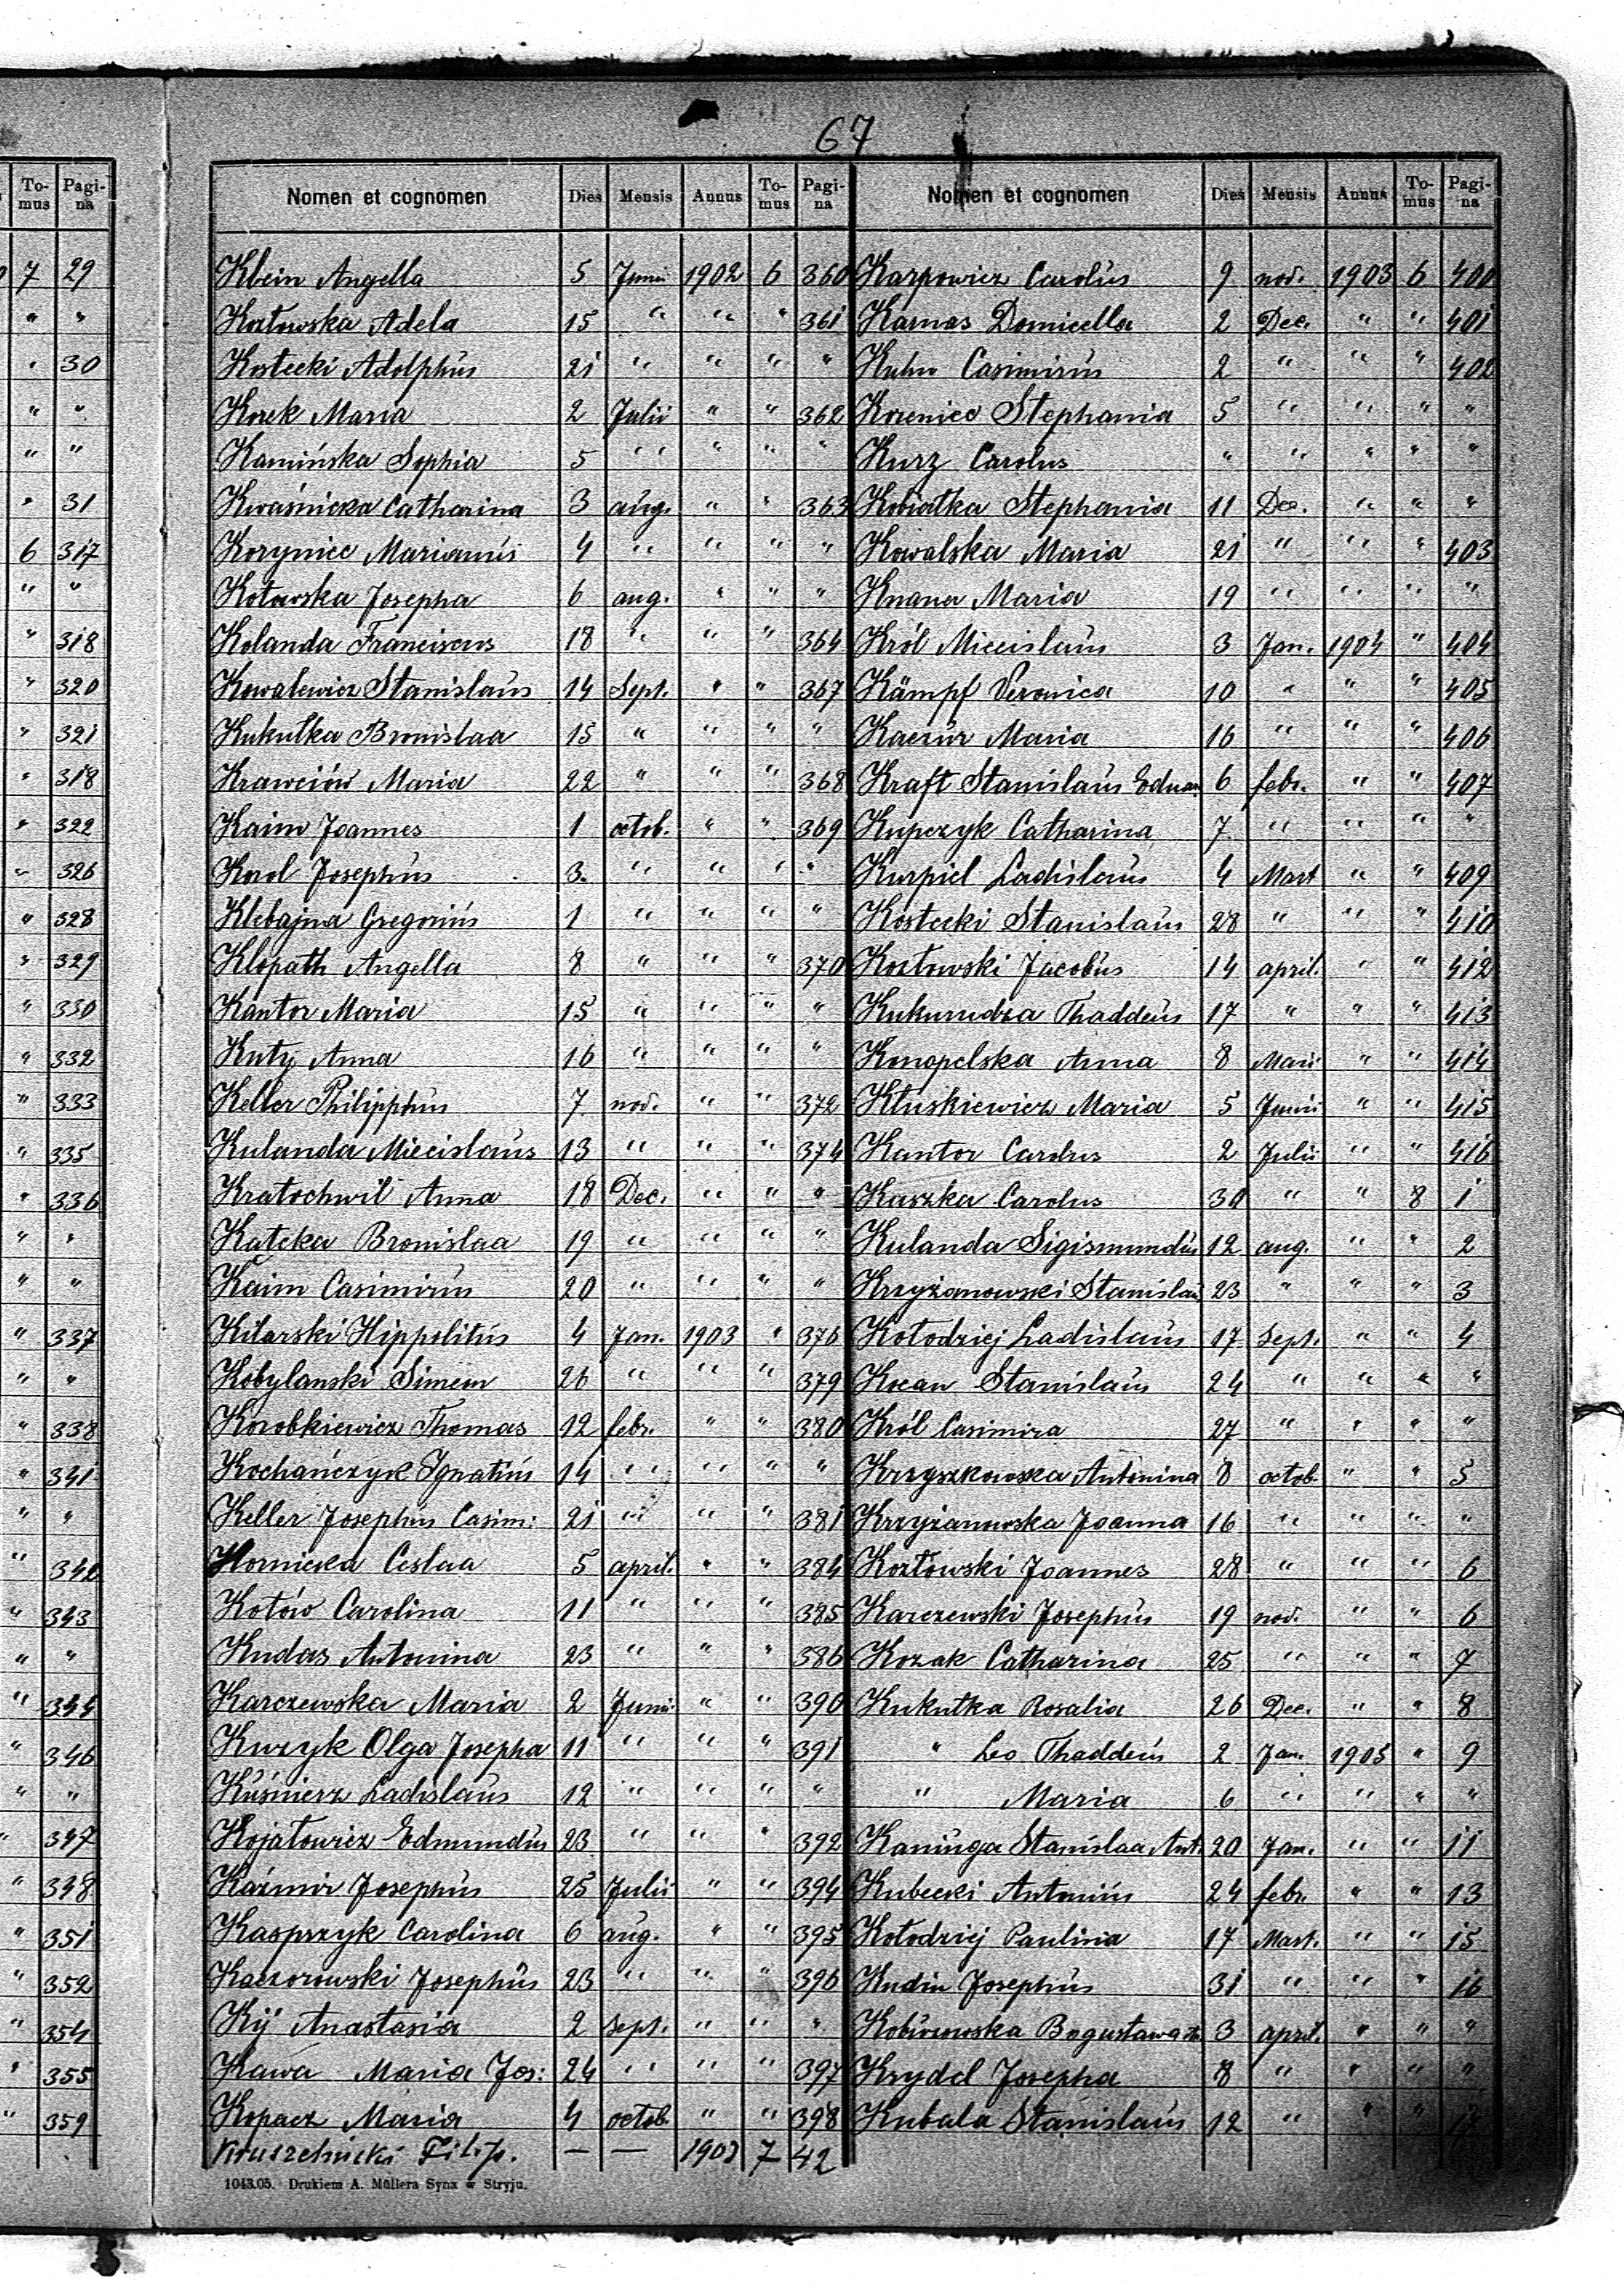 67
To-mus Pagi-na
7 29
" "
" 30
" "
" "
" 31
6 317
" "
" 318
" 320
" 321
" 318
" 322
" 326
" 328
" 329
" 330
" 332
" 333
" 335
" 336
" "
" "
" 337
" "
" 338
" 341
" "
" 342
" 343
" "
" 344
" 346
" "
" 347
" 348
" 351
" 352
" 354
" 355
" 359
Nomen et cognomen Dies Mensis Annus To-mus Pagi-na
Klein Angella 5 Junii 1902 6 360
Kozłowska Adela 15 " " " 361
Kostecki Adolphus 21 " " " "
Kozek Maria 2 Julii " " 362
Kamińska Sophia 5 " " " "
Kwaśnicka Catharina 3 aug. " " 363
Koryniec Marianus 4 " " " "
Kotowska Josepha 6 aug. " " "
Kolanda Franciscus 18 " " " 364
Kowalewicz Stanislaus 14 Sept. " " 367
Kukułka Bronislaa 15 " " " "
Krawciów Maria 22 " " " 368
Kaim Joannes 1 octob. " " 369
Korol Josephus 3. " " " "
Klebajna Gregorius 1 " " " "
Klopath Angella 8 " " " 370
Kantor Maria 15 " " " "
Kuty Anna 16 " " " "
Keller Philipphus 7 nov. " " 372
Kulanda Miecislaus 13 " " " 374
Kratochwil Anna 18 Dec. " " "
Katcka Bronislaa 19 " " " "
Kaim Casimirus 20 " " " "
Kilarski Hippolitus 4 Jan. 1903 " 376
Kobylanski Simeon 26 " " " 379
Korobkiewicz Thomas 12 febr. " " 380
Kochańczyk Ignatius 14 " " " "
Keller Josephus Casim: 21 " " " 381
Kornicka Ceslaa 5 april. " " 384
Kotów Carolina 11 " " " 385
Kudas Antonina 23 " " " 386
Karczewska Maria 2 Junii " " 390
Kuzyk Olga Josepha 11 " " " 391
Kuśnierz Ladislaus 12 " " " "
Kojałowicz Edmundus 23 " " " 392
Kaźmir Josephus 25 Julii " " 394
Kasprzyk Carolina 6 aug. " " 395
Kaczorowski Josephus 23 " " " 396
Kij Anastasia 2 Sept. " " "
Kawa Maria Jos: 24 " " " 397
Kopacz Maria 4 octob " " 398
Kruszelnicki Filip. — — 1903 7 42
Nomen et cognomen Dies Mensis Annus To-mus Pagi-na
Karpowicz Carolus 9 nov. 1903 6 400
Karnas Domicella 2 Dec. " " 401
Kuhn Casimirus 2 " " " 402
Koreniec Stephania 5 " " " "
Kurz Carolus " " " " "
Kobiałka Stephania 11 Dec. " " "
Kowalska Maria 21 " " " 403
Knana Maria 19 " " " "
Król Miecislaus 3 Jan. 1904 " 404
Kämpf Veronica 10 " " " 405
Kaczur Maria 16 " " " 406
Kraft Stanislaus Eduar. 6 febr. " " 407
Kupczyk Catharina 7 " " " "
Kurpiel Ladislaus 4 Mart " " 409
Kostecki Stanislaus 28 " " " 410
Kozłowski Jacobus 14 april. " " 412
Kukurudza Thaddeus 17 " " " 413
Konopelska Anna 8 Maii " " 414
Kluskiewicz Maria 5 Junii " " 415
Kantor Carolus 2 Julii " " 416
Kaszka Carolus 30 " " 8 1
Kulanda Sigismundus 12 aug. " " 2
Krzyżanowski Stanislaus 23 " " " 3
Kołodziej Ladislaus 17 Sept. " " 4
Kocan Stanislaus 24 " " " "
Król Casimira 27 " " " "
Krzyszkowska Antonina 8 octob. " " 5
Krzyżanowska Joanna 16 " " " "
Kozłowski Joannes 28 " " " 6
Karczewski Josephus 19 nov. " " 6
Kozak Catharina 25 " " " 7
Kukułka Rosalia 26 Dec. " " 8
" Leo Thaddeus 2 Jan. 1905 " 9
" Maria 6 " " " "
Kaniuga Stanislaa Ant. 20 Jan. " " 11
Kubecki Antonius 24 febr. " " 13
Kołodziej Paulina 17 Mart. " " 15
Kudin Josephus 31 " " " 16
Bogusława 3 april. " " "
Krydel Josepha 8 " " " "
Kubala Stanislaus 12 " " " 17
1043.05. Drukiem A. Müllera Syna w Stryju.